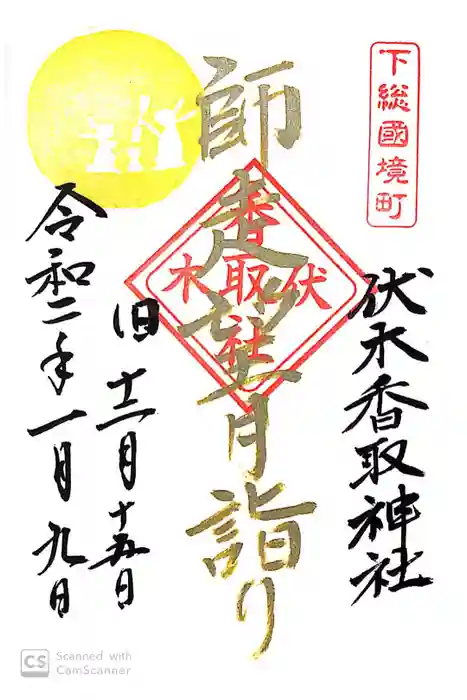 下総國境町
伏木香取神社
師走望月詣り
伏木香取社
旧十二月十五日
令和二年一月九日
CS Scanned with
CamScanner